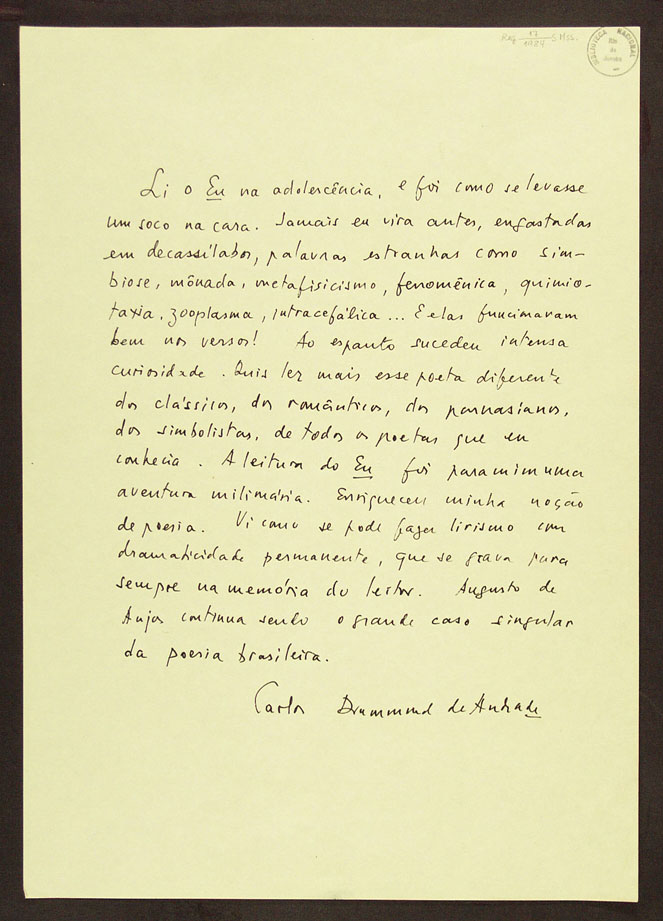 Reg 17
1984 S Msc.
BIBLIOTECA NACIONAL
Rio
de
Janeiro
Li o Eu na adolescência, e foi como se levasse
um soco na cara. Jamais eu vira antes, engastadas
em decassílabos, palavras estranhas como sim-
biose, mônada, metafisicismo, fenomênica, quimio-
taxia, zooplasma, intracefálica... E elas funcionavam
bem nos versos! Ao espanto sucedeu intensa
curiosidade. Quis ler mais esse poeta diferente
dos clássicos, dos românticos, dos parnasianos,
dos simbolistas, de todos os poetas que eu
conhecia. A leitura do Eu foi para mim uma
aventura milionária. Enriqueceu minha noção
de poesia. Vi como se pode fazer lirismo com
dramaticidade permanente, que se grava para
sempre na memória do leitor. Augusto de
Anjos continua sendo o grande caso singular
da poesia brasileira.
Carlos Drummond de Andrade